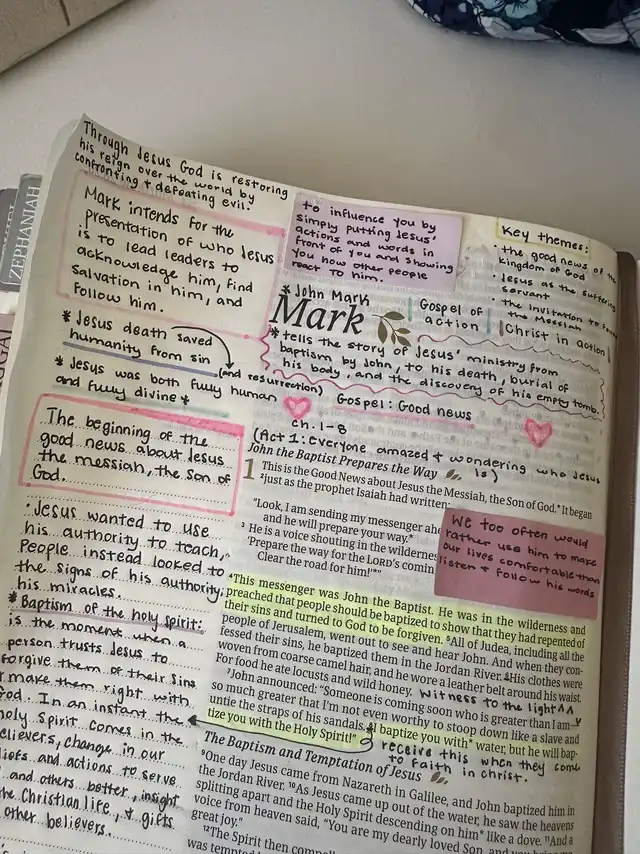 ZEPHANIAH
GGAI
Through Jesus God is restoring
his reign over the world by
confronting + defeating evil.
Mark intends for the
presentation of who Jesus
is to lead leaders to
acknowledge him, find
salvation in him, and
follow him.
to influence you by
simply putting Jesus'
actions and words in
front of you and showing
you how other people
react to him.
Key themes:
• the good news of the
kingdom of God
• Jesus as the suffering
servant
• the invitation to
the Messiah
* John Mark
Mark
Gospel of
action
Christ in action
* tells the story of Jesus' ministry from
baptism by John, to his death, burial of
his body, and the discovery of his empty tomb.
* Jesus death saved
humanity from sin
(and resurrection)
* Jesus was both fully human
and fully divine *
Gospel: Good news
ch. 1-8
(Act 1: everyone amazed + wondering who Jesus
is)
The beginning of the
good news about Jesus
the messiah, the Son of
God.
• Jesus wanted to use
his authority to teach,
People instead looked to
the signs of his authority,
his miracles.
* Baptism of the holy spirit:
is the moment when a
person trusts Jesus to
forgive them of their sins
make them right with
God. In an instant the
holy spirit comes in the
believers, change in our
liefs and actions to serve
and others better, insight
the Christian life, + gifts
other believers.
John the Baptist Prepares the Way
1 This is the Good News about Jesus the Messiah, the Son of God.* It began
2 just as the prophet Isaiah had written:
"Look, I am sending my messenger ahe
and he will prepare your way.*
3 He is a voice shouting in the wildernes
'Prepare the way for the LORD's comin
Clear the road for him!'*"
We too often would
rather use him to make
our lives comfortable than
listen + follow his words
4 This messenger was John the Baptist. He was in the wilderness and
preached that people should be baptized to show that they had repented of
their sins and turned to God to be forgiven. 5 All of Judea, including all the
people of Jerusalem, went out to see and hear John. And when they con-
fessed their sins, he baptized them in the Jordan River. 6 His clothes were
woven from coarse camel hair, and he wore a leather belt around his waist.
For food he ate locusts and wild honey.
witness to the light
7 John announced: "Someone is coming soon who is greater than I am—
so much greater that I'm not even worthy to stoop down like a slave and
untie the straps of his sandals. 8 I baptize you with* water, but he will bap-
tize you with the Holy Spirit!"
receive this when they come
to faith in christ.
The Baptism and Temptation of Jesus
9 One day Jesus came from Nazareth in Galilee, and John baptized him in
the Jordan River. 10 As Jesus came up out of the water, he saw the heavens
splitting apart and the Holy Spirit descending on him* like a dove. 11 And a
voice from heaven said, "You are my dearly loved Son, and you bring me
great joy."
12 The Spirit then compel
was tempted